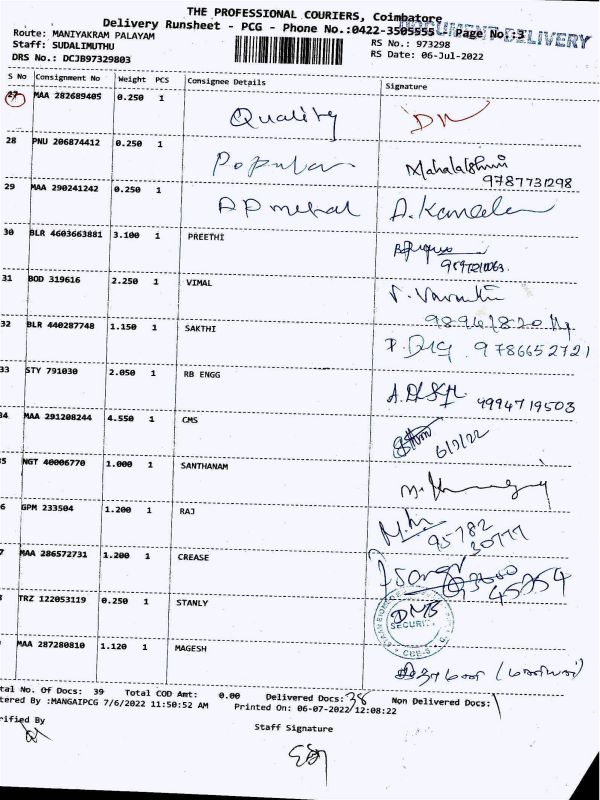 THE PROFESSIONAL COURIERS, Coimbatore
Delivery Runsheet - PCG - Phone No.:0422-3505555 Page No.:3
DOCUMENT DELIVERY
Route: MANIYAKRAM PALAYAM
RS No.: 973298
Staff: SUDALIMUTHU
RS Date: 06-Jul-2022
DRS No.: DCJB97329803
S No Consignment No Weight PCS Consignee Details Signature
27 MAA 282689405 0.250 1 Quality
28 PNU 206874412 0.250 1 Popular Mahalakshmi
9787731298
29 MAA 290241242 0.250 1 AP metal A.
30 BLR 4603663881 3.100 1 PREETHI
31 BOD 319616 2.250 1 VIMAL
32 BLR 440287748 1.150 1 SAKTHI
9786652721
33 STY 791030 2.050 1 RB ENGG
4994719503
34 MAA 291208244 4.550 1 CMS
6/7/22
5 NGT 40006770 1.000 1 SANTHANAM
6 GPM 233504 1.200 1 RAJ
95782
30777
7 MAA 286572731 1.200 1 CREASE
TRZ 122053119 0.250 1 STANLY
SECURITY
CBE-5
MAA 287280810 1.120 1 MAGESH
tal No. Of Docs: 39 Total COD Amt: 0.00 Delivered Docs: 38 Non Delivered Docs: 1
tered By :MANGAIPCG 7/6/2022 11:50:52 AM Printed On: 06-07-2022 12:08:22
rified By
Staff Signature